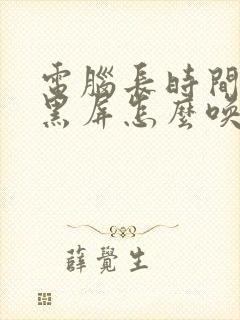 電腦長時間
黑屏怎麼喚
薛覺生